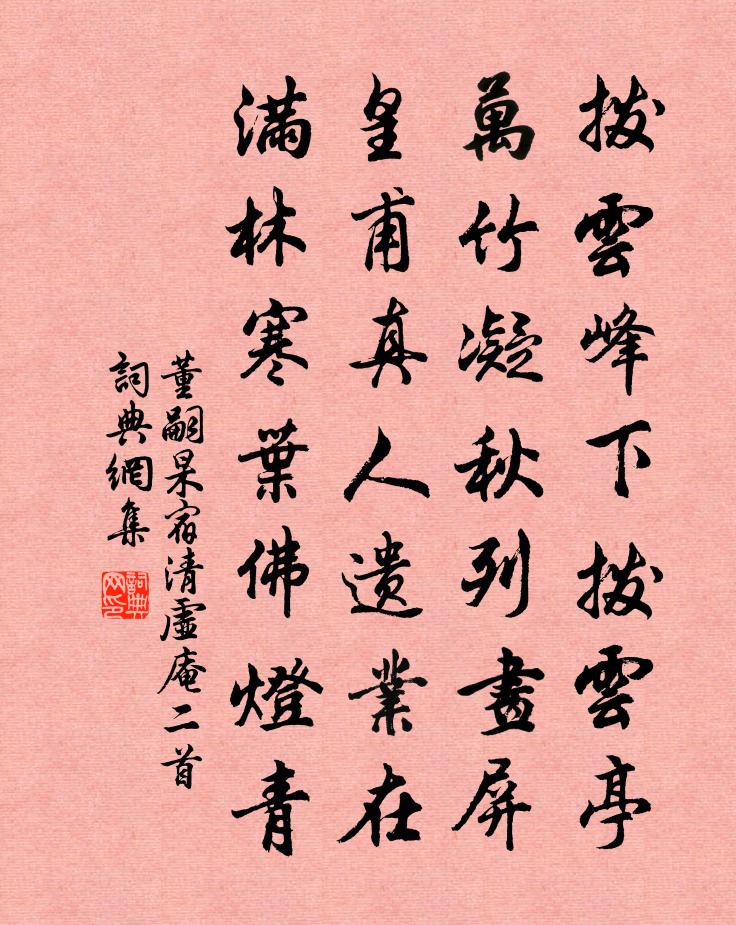 拨雲峰下拨雲亭
萬竹凝秋列畫屏
皇甫真人遺業在
满林寒葉佛燈青
董嗣杲宿清虛庵二首
詞典網集
詞典网印